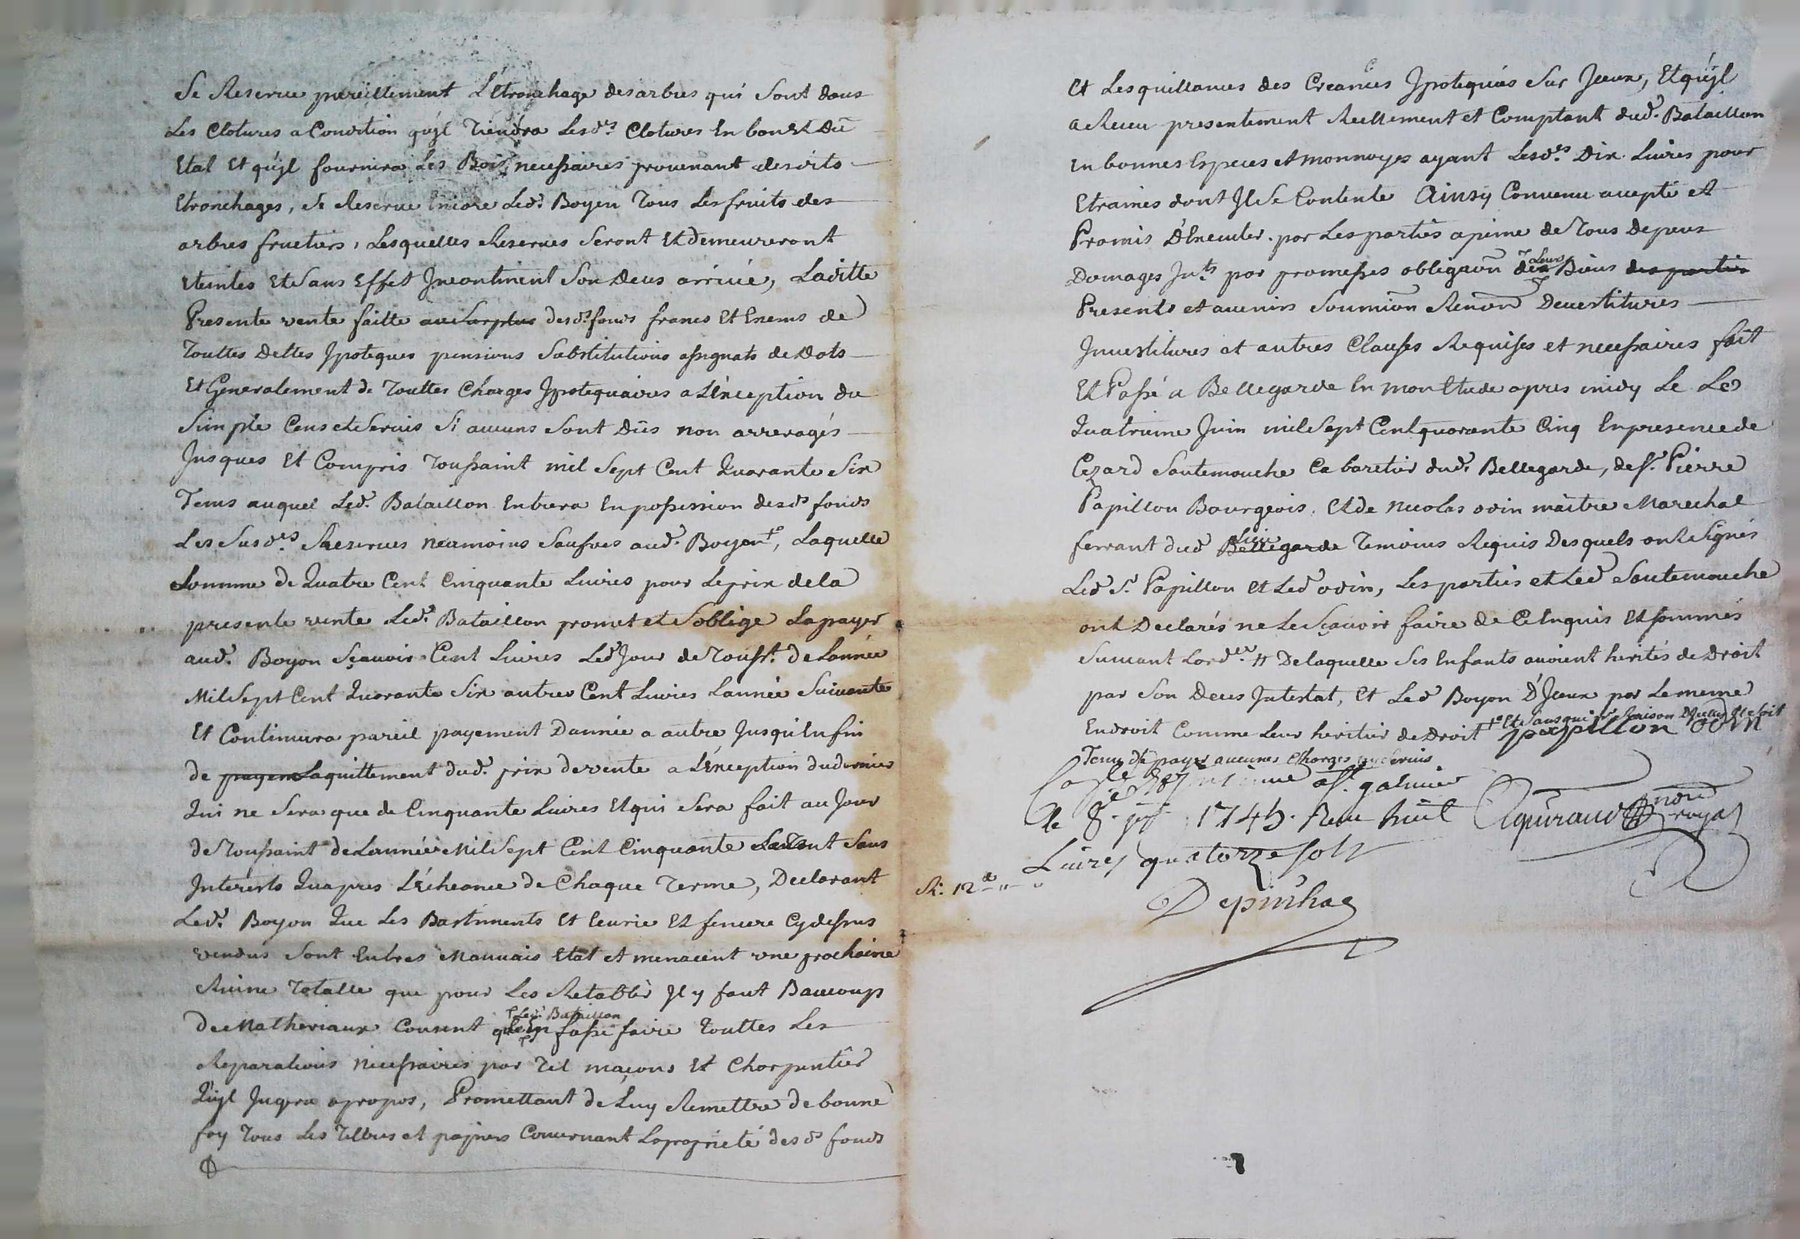 Se Reserve pareillement L'Etronchage des arbres qui Sont dans
Les Clotures a Condition qu'jl Tiendra Lesd.es Clotures En bon Et Dû
Etat Et qu'jl fournira Les Bois necessaires provenant desdits
Etronchages, Se Reserve Encore Led. Boyon Tous Les fruits des
arbres fructiers, Lesquelles Reserves Seront Et demeureront
eteintes Et Sans Effet Jncontinent Son Deces arrivé, Laditte
Presente vente faitte au Surplus desd. fonds francs Et Exems de
Touttes Dettes Jpoteques pensions Substitutions assignats de Dots
Et Generalement de Touttes Charges Jpotequaires a L'exception du
Simple Cens et Servis Si aucuns Sont Dûs non arreragés
Jusques Et Compris Toussaint mil Sept Cent Quarante Six
Tems auquel Led. Bataillon Entrera En possession desds fonds
Les Susd.es Reserves neamoins Saufves aud. Boyon, Laquelle
Somme de Quatre Cent Cinquante Livres pour Le prix de la
presente vente Led. Bataillon promet et S'oblige La payer
aud. Boyon Sçavoir Cent Livres Led. Jour de Touss.t de Lannée
Mil Sept Cent Quarante Six autres Cent Livres Lannée Suivante
Et Continuera pareil payement Dannée a autre Jusqu'En fin
de payem Laquittement dud. prix de vente a L'exception du dernier
Qui ne Sera que de Cinquante Livres Et qui Sera fait au Jour
de Toussaint de Lannée Mil Sept Cent Cinquante Le tout Sans
Interests Qu'apres L'écheance de Chaque Terme, Declarant
Led. Boyon Que Les Bastiments Et Ecurie Et feniere Cy dessus
vendus Sont En tres Mauvais Etat et menacent une prochaine
Ruine Totalle que pour Les Retablir Jl y faut Baucoup
de Matheriaux Consent que Led. Bataillon fasse faire Touttes Les
Reparations necessaires par Tel maçons Et Charpentier
Qu'jl Jugera apropos, Promettant de Luy Remettre de bonne
foy Tous Les Tiltres et papiers Concernant La proprieté desds fonds
Et Les quittances des Creances Jpotequées Sur Jceux, Et qu'jl
a Receu presentement Reellement et Comptant dud. Bataillon
En bonnes Especes et monnoyes ayant Lesd.es Dix Livres pour
Etraines dont Jl Se Contente Ainsy Convenu accepté et
Promis D'Executer par Les parties a peine de Tous Depens
Domages Int.ts par promesses obligaõn de Leurs Biens des parties
Presents et avenirs Soumission Renon Devestitures
Jnvestitures et autres Clauses Requises et necessaires fait
Et Passé a Bellegarde En mon Etude apres midy Le
Quatrieme Juin mil Sept Cent quarante Cinq En presence de
Cezard Soutemouche Cabaretier dud. Bellegarde, de Sr. Pierre
Papillon Bourgeois, Et de Nicolas odin maitre Marechal
ferrant dud Lieu Bellegarde Temoins Requis Desquels ont Signés
Led. Sr. Papillon Et Led odin, Les parties et Led Soutemouche
ont Declarés ne Le Sçavoir faire de Ce Enquis Et Sommés
Suivant Lord.ce # De laquelle Ses Enfants avoient herités de Droit
par Son Deces Intestat, Et Led Boyon D'Jceux par Le meme
Endroit Comme Leur heritier de Droit Et Sans que
papillon odin
Tenu de payer aucunes Charges ny Servis
galmier
le 8. 1745. Reçu huit
Livres quatorze Sols
Rt. 12
Depinhac
Eyguiraud no.re royal